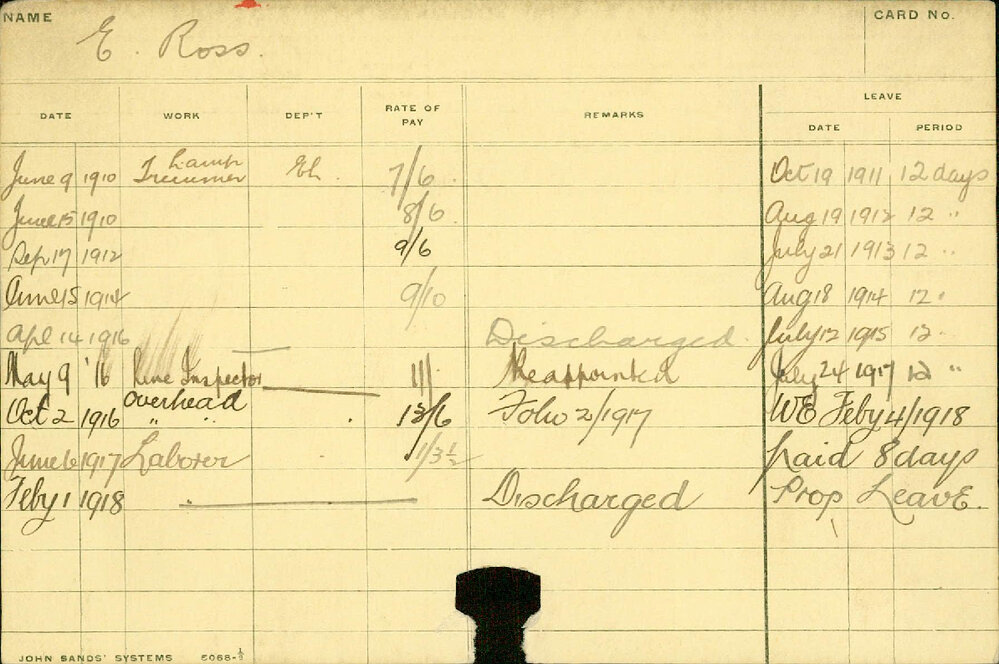 NAME
CARD No.
E. Ross.
DATE WORK DEP'T RATE OF PAY REMARKS LEAVE
DATE PERIOD
June 9 1910 Lamp Trimmer Eh. 7/6 Oct 19 1911 12 days
June 15 1910 8/6 Aug 19 1912 12 "
Sep 17 1912 9/6 July 21 1913 12 "
June 15 1914 9/10 Aug 18 1914 12 "
Apl 14 1916 Discharged. July 12 1915 12 "
May 9 '16 Line Inspector 11/ Reappointed July 24 1917 12 "
overhead
Oct 2 1916 " " 13/6 Folio 2/1917 WE Feby 4/1918
June 6 1917 Laborer 1/3½ Paid 8 days
Feby 1 1918 Discharged Prop Leave.
JOHN SANDS' SYSTEMS 5068-